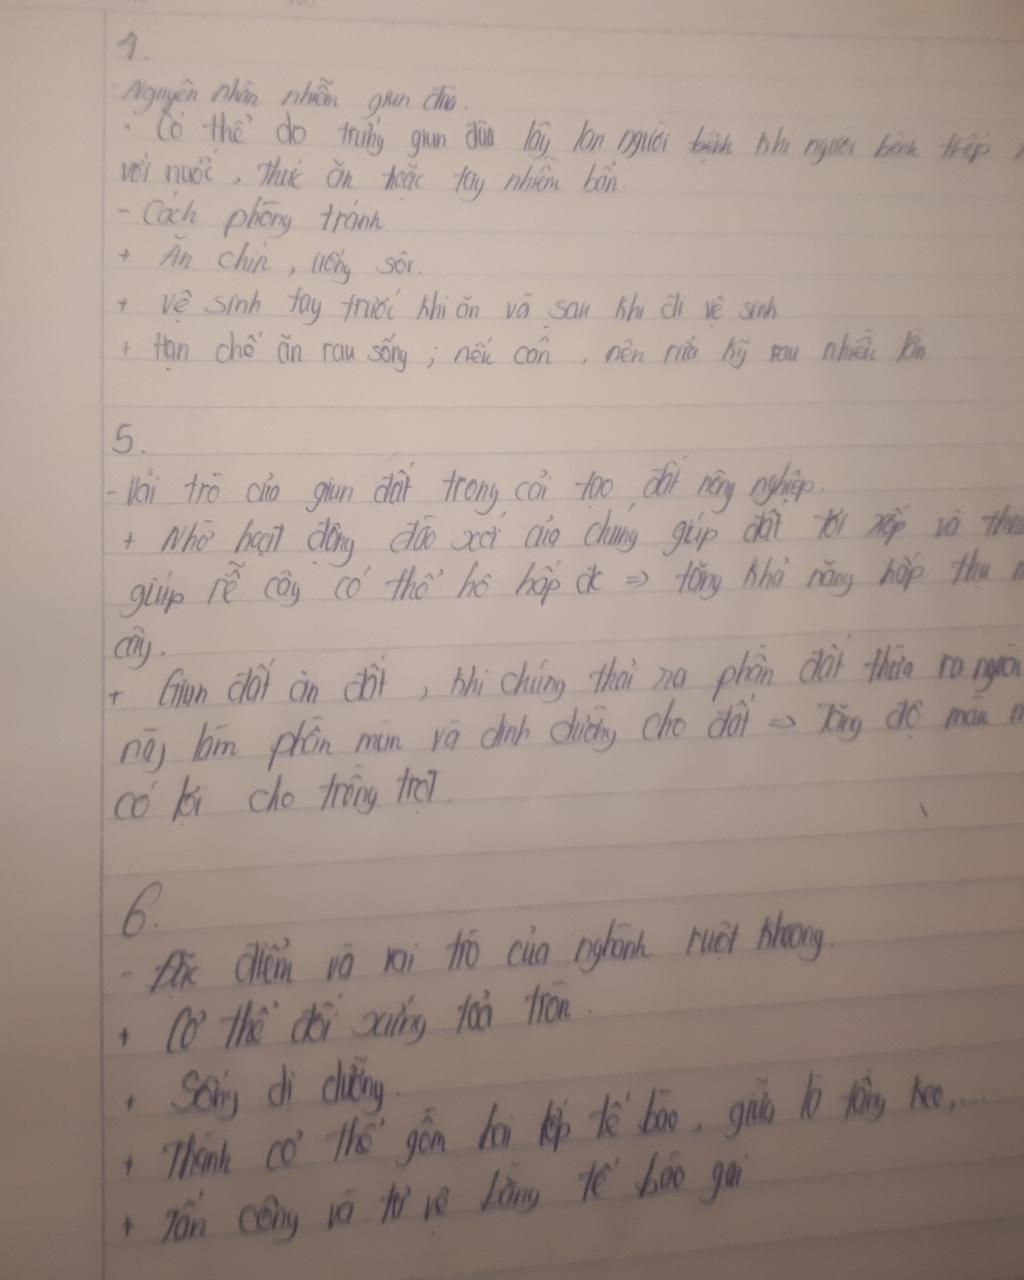 1.
Nguyên nhân nhiễm giun đũa.
Có thể do trứng giun đũa lây lan người bệnh khi người bệnh tiếp
với nước, thức ăn hoặc tay nhiễm bẩn.
- Cách phòng tránh
+ Ăn chín, uống sôi.
+ Vệ sinh tay trước khi ăn và sau khi đi vệ sinh
+ Hạn chế ăn rau sống, nếu cần, nên rửa kỹ rau nhiều lần
5.
- Vai trò của giun đất trong cải tạo đất nông nghiệp.
+ Nhờ hoạt động đào xới của chúng giúp đất tơi xốp và
giúp rễ cây có thể hô hấp đc => tăng khả năng hấp thu
cây.
+ Giun đất ăn đất, khi chúng thải ra phần đất thừa ra
này làm phân mùn và dinh dưỡng cho đất => Tăng độ màu
có lợi cho trồng trọt.
6.
- Đặc điểm và vai trò của nghành ruột khoang.
+ Cơ thể đối xứng toả tròn.
+ Sống dị dưỡng.
+ Thành cơ thể gồm hai lớp tế bào, giữa là tầng keo,...
+ Tấn công và tự vệ bằng tế bào gai